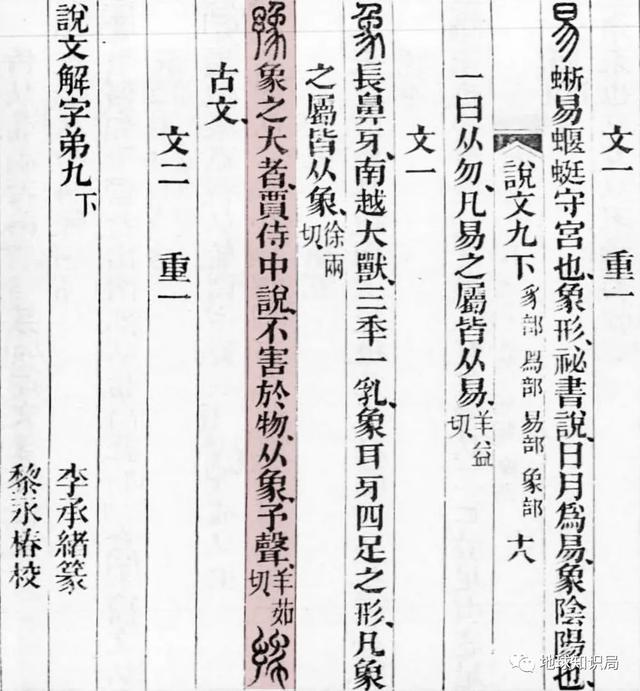 文一 重一
易 蜥易蝘蜓守宫也象形祕書說日月爲易象陰陽也
說文九下 豸部 㣇部 易部 象部 十八
一曰从勿凡易之屬皆从易羊益切
文一
象 長鼻牙南越大獸三秊一乳象耳牙四足之形凡象
之屬皆从象徐兩切
豫 象之大者賈侍中說不害於物从象予聲羊茹切
古文
文二 重一
說文解字弟九下
李承緒篆
黎永椿校
地球知识局